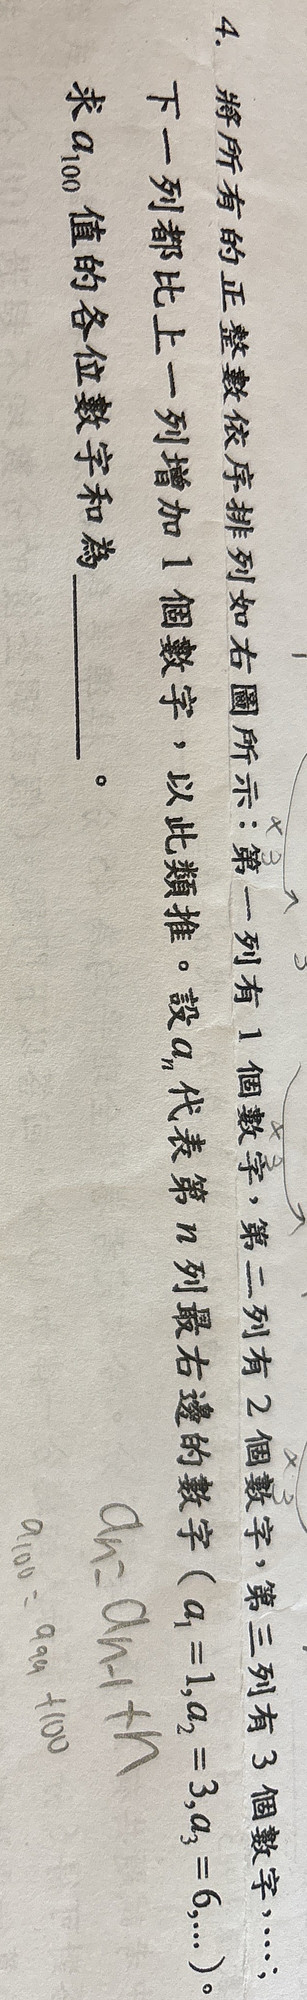 4. 將所有的正整數依序排列如右圖所示：第一列有 1 個數字，第二列有 2 個數字，第三列有 3 個數字，....；
下一列都比上一列增加 1 個數字，以此類推。設 aₙ 代表第 n 列最右邊的數字（a₁ = 1, a₂ = 3, a₃ = 6,...）。
求 a₁₀₀ 值的各位數字和為______。
×3
3
×3
×3
aₙ = aₙ₋₁ + n
a₁₀₀ = a₉₉ + 100